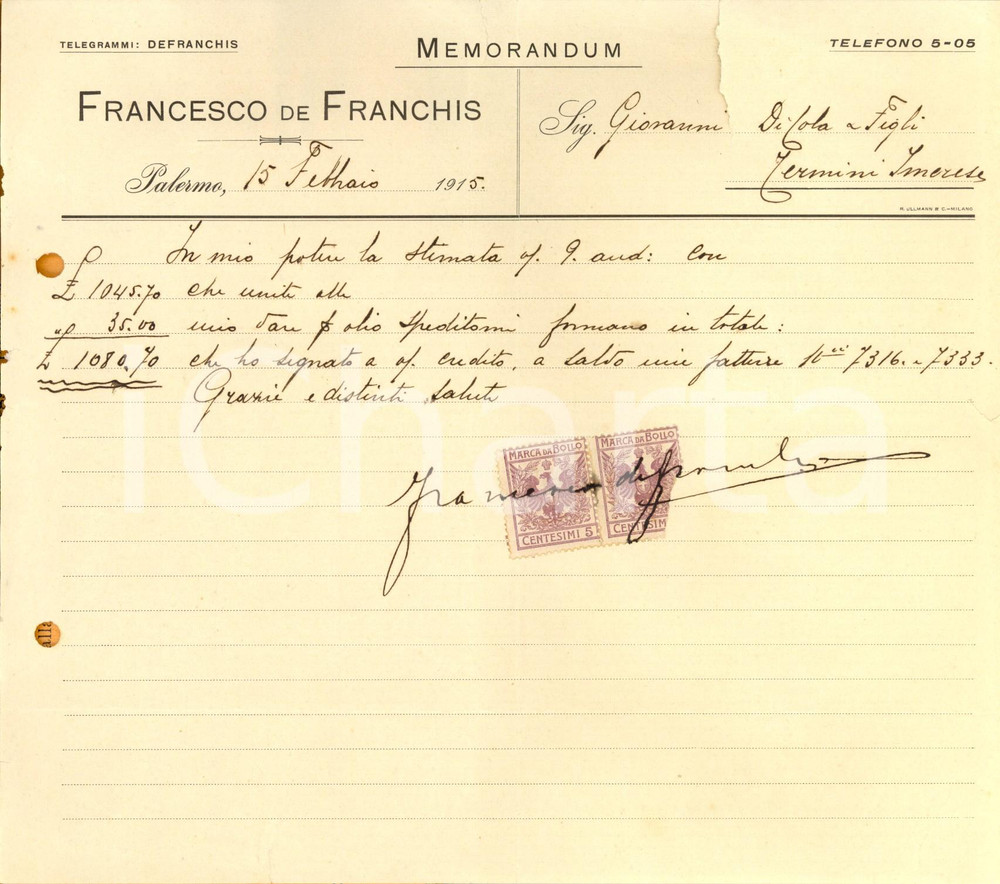 TELEGRAMMI: DEFRANCHIS
MEMORANDUM
TELEFONO 5-05
FRANCESCO DE FRANCHIS
Sig. Giovanni Di Cola e Figli
Termini Imerese
Palermo, 15 Febbraio 1915.
R. ULLMANN & C.-MILANO
In mio potere la stimata of. 9. and: con
£ 1045.70 che unite alle
" 35.00 mio dare olio speditomi formano in totale:
£ 1080.70 che ho segnato a of. credito, a saldo mie fatture Nri 7316. e 7333.
Grazie e distinti saluti
MARCA DA BOLLO
CENTESIMI 5
MARCA DA BOLLO
CENTESIM
Francesco de Franchis
alla
iCharta